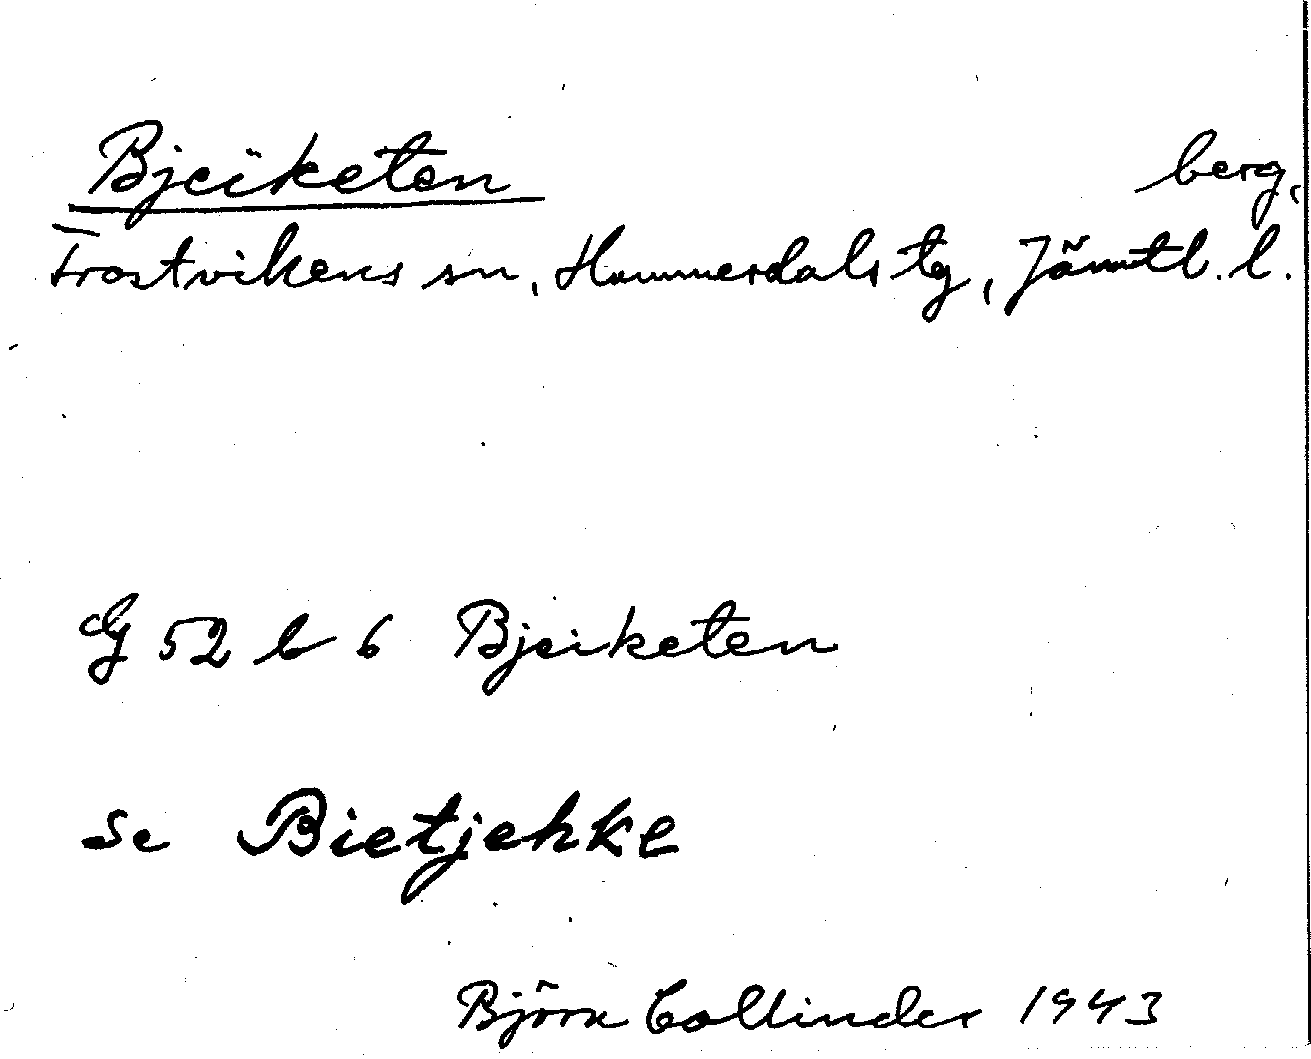 Bjeiketen berg,
Frostvikens sn, Hammerdals tg, Jämtl. l.
G 52 b 6 Bjeiketen
se Bietjehke
Björn Collinder 1943